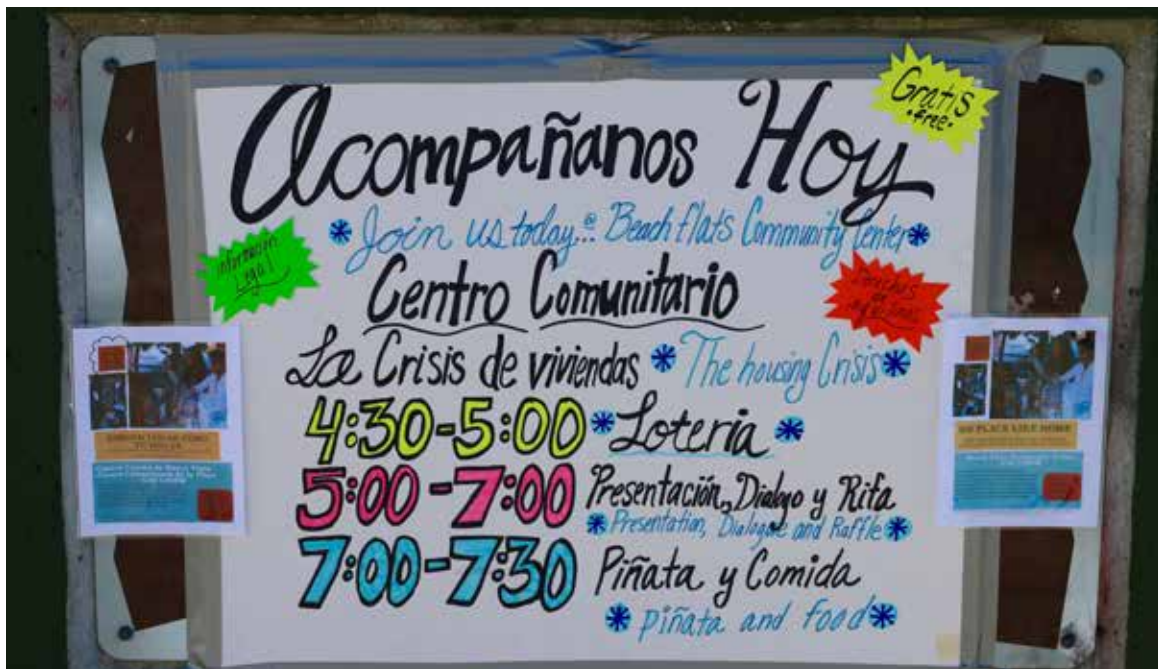 Acompañanos Hoy
Gratis
•free•
Join us today...@ Beach flats Community Center
Información
Legal
Centro Comunitario
La Crisis de viviendas
The housing Crisis
4:30-5:00 Loteria
5:00-7:00 Presentación, Dialogo y Rifa
Presentation, Dialogue and Raffle
7:00-7:30 Piñata y Comida
piñata and food
NO PLACE LIKE HOME